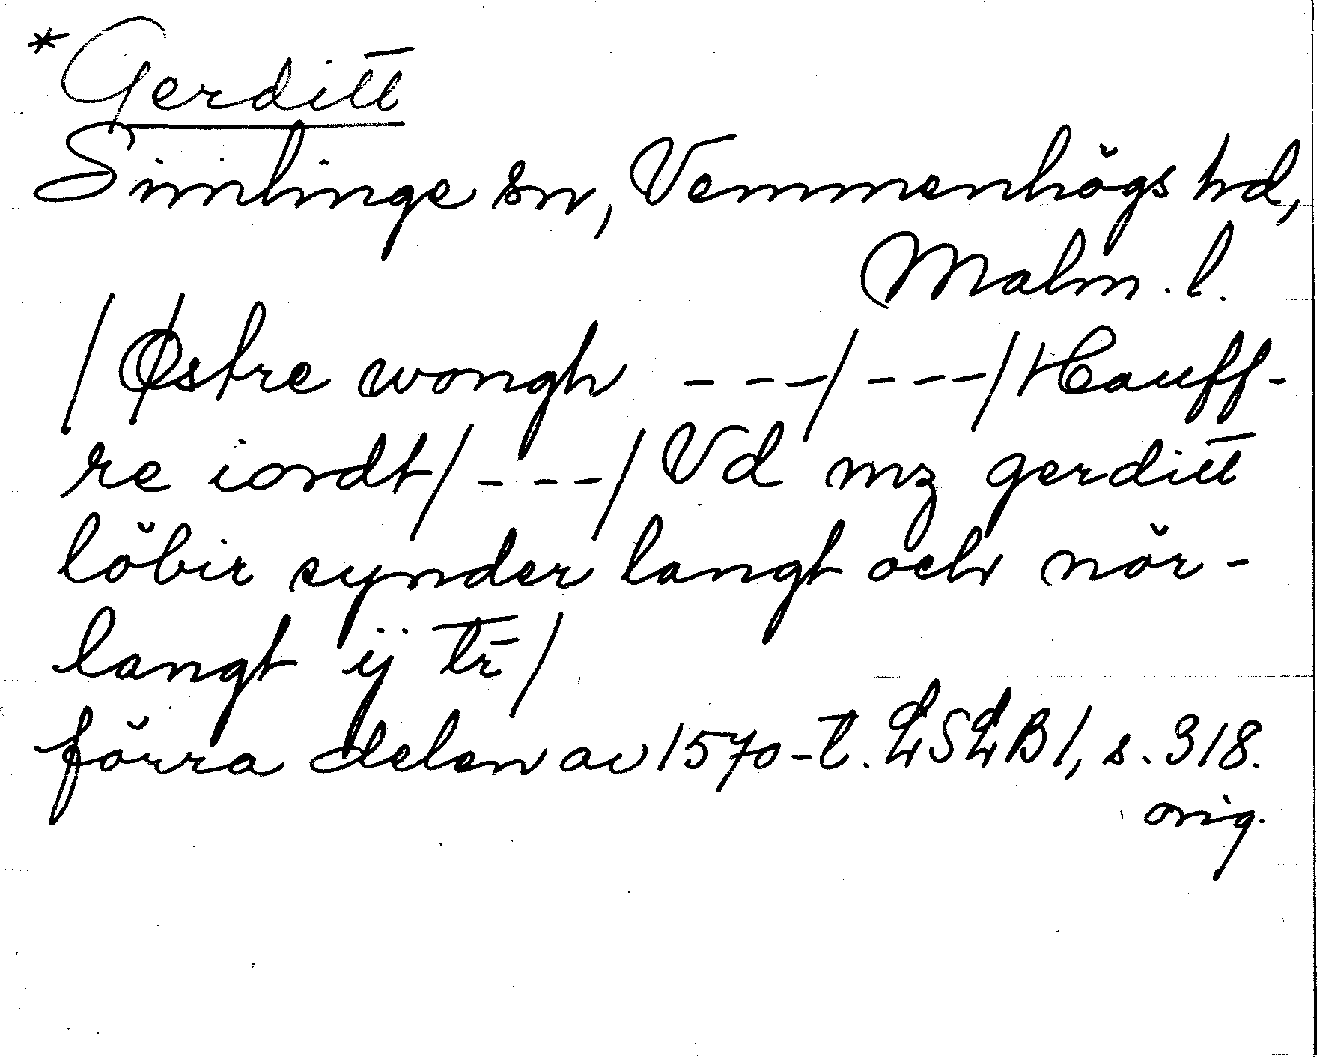 *Gerditt
Simlinge sn, Vemmenhögs hd,
Malm. l.
/ Østre wongh ---/----/ Hauff-
re iordt/----/ Vd mz gerditt
löbir synder langt och nör-
langt ij tr̄/
förra delen av 1570-t. LSLB 1, s. 318.
orig.